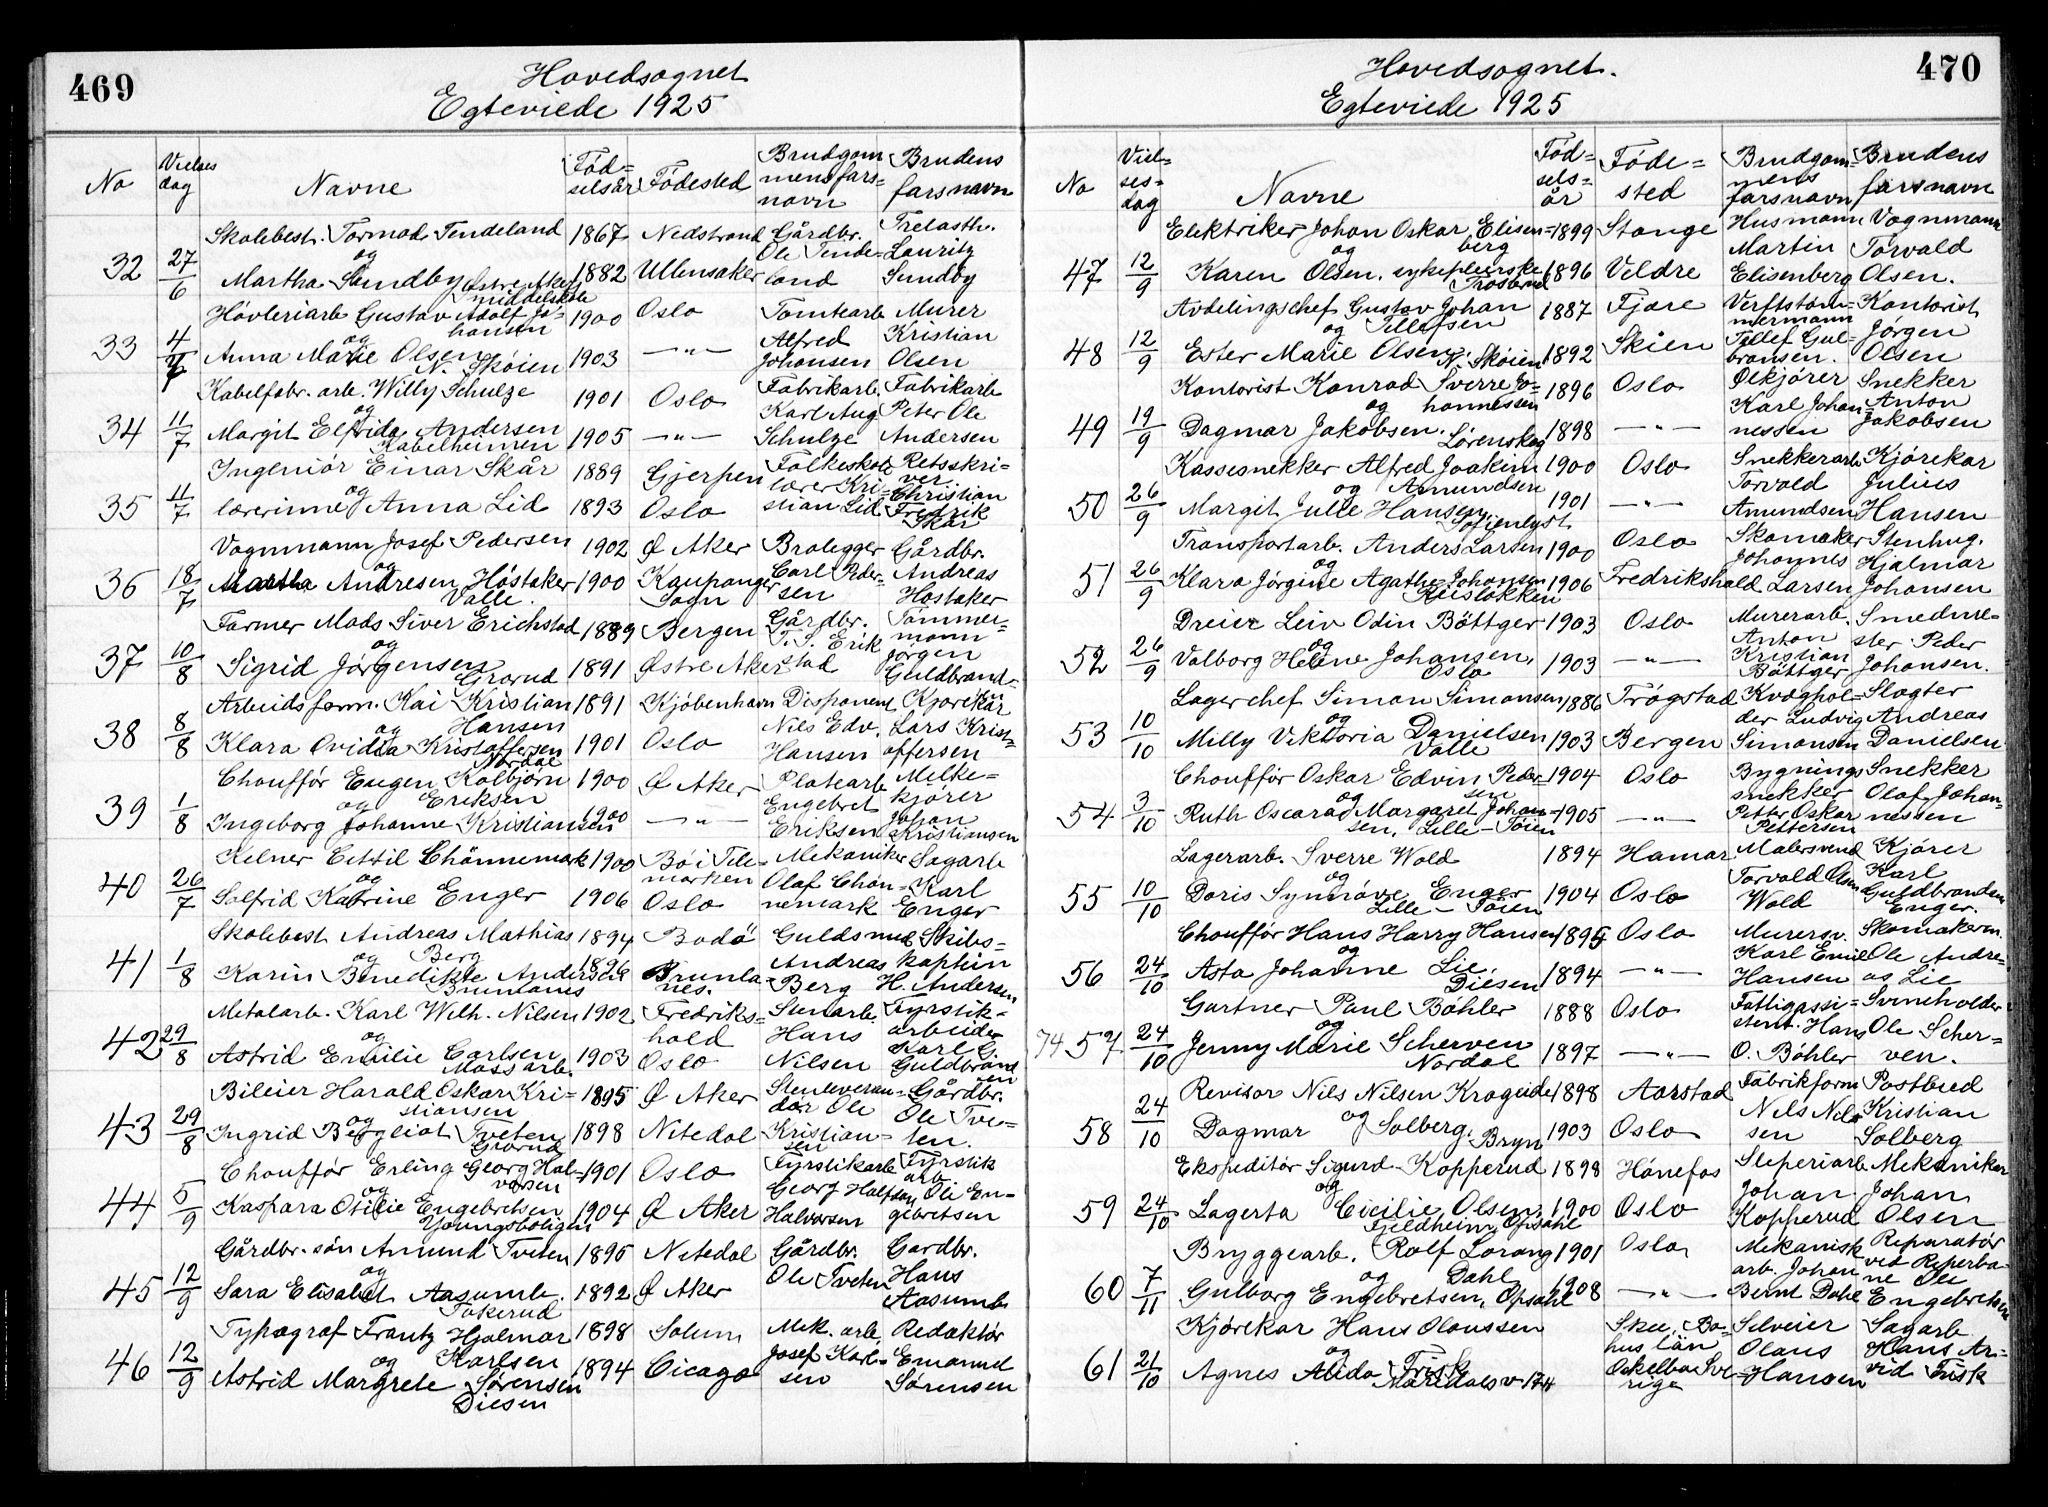 469
Hovedsognet
Egteviede 1925
No
Vielses dag
Navne
Fød=selsår
Fødested
Brudgommens farsnavn
Brudens farsnavn
32 27/6 Skolebest. Tormod Tendeland 1867 Nedstrand Gårdbr. Ole Tendeland Trelasth. Lauritz Sundby
og
Martha Sundby Østre Aker middelskole 1882 Ullensaker
33 4/7 Høvleriarb Gustav Adolf Johansen 1900 Oslo Tomtearb Alfred Johansen Murer Kristian Olsen
og
Anna Marie Olsen N. Skøien 1903 —"—
34 11/7 Kabelfabr. arb. Willy Schulze 1901 Oslo Fabrikarb. Karl Aug Schulze Fabrikarb Peter Ole Andersen
og
Margit Elfrida Andersen Kabelheimen 1905 —"—
35 11/7 Ingeniør Einar Skår 1889 Gjerpen Folkeskolelærer Kristian Lid Retsskriver. Christian Fredrik Skår
og
lærerinne Anna Lid 1893 Oslo
36 18/7 Vognmann Josef Pedersen 1902 Ø Aker Brolegger Carl Pedersen Gårdbr. Andreas Høstaker
og
Martha Andresen Høstaker Valle 1900 Kaupanger Sogn
37 10/8 Farmer Mads Siver Erichstad 1889 Bergen Gårdbr. T. S. Erikstad Tømmermann Jørgen Guldbrand
og
Sigrid Jørgensen Grorud 1891 Østre Aker
38 8/8 Arbeidsform. Kai Kristian Hansen 1891 Kjøbenhavn Disponent Nils Edv. Hansen Kjørekar Lars Kristoffersen
og
Klara Ovidia Kristoffersen Nordal 1901 Oslo
39 1/8 Chouffør Eugen Kolbjørn Eriksen 1900 Ø Aker Platearb Engebret Eriksen Melkekjører Johan Kristiansen
og
Ingeborg Johanne Kristiansen 1900 —"—
40 26/7 Kelner Cettil Chønnemark 1900 Bø i Telemarken Mekaniker Olaf Chønnemark Sagarb Karl Enger
og
Solfrid Katrine Enger 1906 Oslo
41 1/8 Skolebest Andreas Mathias Berg 1894 Bodø Guldsmed Andreas Berg Skibskaptein H. Andersen
og
Karin Benedikte Andersen 1896 Brunlanes.
42 29/8 Metalarb. Karl Wilh. Nilsen 1902 Fredrikshold Hans Nilsen Fyrstikarbeider Karl G. Guldbrandsen
og
Astrid Emilie Carlsen 1903 Oslo
43 29/8 Bileier Harald Oskar Kristiansen 1895 Ø Aker Stenleverandør Ole Kristiansen Gårdbr. Ole Tveten.
og
Ingrid Bergliot Tveten Grorud 1898 Nitedal
44 5/9 Chouffør Erling Georg Halvorsen 1901 Oslo Fyrstikarb Georg Halfdan Halvorsen Fyrstik arb Ole Engebretsen
og
Kaspara Otilie Engebretsen Youngsboligen 1904 Ø Aker
45 12/9 Gårdbr. søn Amund Tveten 1895 Nitedal Gårdbr. Ole Tveten Gardbr. Hans Aasumb
og
Sara Elisabet Aasumb. Fokerud 1892 Ø Aker
46 12/9 Typograf Frantz Hjalmar Karlsen 1898 Solum Mek. arb. Josef Karlsen Redaktør Emanuel Sørensen
og
Astrid Margrete Sørensen Diesen 1894 Cicago
470
Hovedsognet.
Egteviede 1925
No
Vielsesdag
Navne
Fødselsår
Fødested
Brudgommens farsnavn
Brudens farsnavn
47 12/9 Elektriker Johan Oskar Elisenberg 1899 Stange Husmann Martin Elisenberg Vognmann Torvald Olsen.
og
Karen Olsen. sykepleierske 1896 Veldre
48 12/9 Avdelingschef Gustav Johan Tellefsen 1887 Fjære Verftstømmermann Tellef Gulbransen. Kontorist Jørgen Olsen
og
Ester Marie Olsen. N. Skøien 1892 Skien
49 19/9 Kontorist Konrad Sverre Johannessen 1896 Oslo Ølkjører Karl Johannessen Snekker Anton Jakobsen
og
Dagmar Jakobsen. Lørenskog 1898 —"—
50 26/9 Kassesnekker Alfred Joakim Amundsen 1900 Oslo Snekkerarb Torvald Amundsen Kjørekar Julius Hansen
og
Margit Julie Hansen. Sofienlyst 1901 —"—
51 26/9 Transportarb. Anders Larsen 1900 Oslo Skomaker Johannes Larsen Stenhug. Hjalmar Johansen
og
Klara Jørgine Agathe Johansen 1906 Fredrikshald
52 26/9 Dreier Leiv Odin Bøttger 1903 Oslo Murerarb. Anton Kristian Bøttger Smedmester Peder Johansen.
og
Valborg Helene Johansen, Oslo 1903 —"—
53 10/10 Lagerchef Simon Simonsen 1886 Trøgstad Kvægholder Ludvig Simonsen Slagter Andreas Danielsen
og
Milly Viktoria Danielsen Valle 1903 Bergen
54 3/10 Chouffør Oskar Edvin Pedersen 1904 Oslo Bygnings snekker Petter Oskar Pettersen Snekker Olaf Johannessen
og
Ruth Oscara Margaret Johansen, Lille-Tøien 1905 —"—
55 10/10 Lagerarb. Sverre Wold 1894 Hamar Malersvend Torvald Wold Kjører Karl Guldbrandsen Enger.
og
Doris Synnøve Enger Lille-Tøien 1904 Oslo
56 24/10 Chouffør Hans Harry Hansen 1895 Oslo Murersv. Karl Emil Hansen Skomakerm. Ole Andreas Lie
og
Asta Johanne Lie Diesen 1894 —"—
74 57 24/10 Gartner Paul Bøhler 1888 Oslo Fattigassistent. Hans O. Bøhler Svineholder Ole Scherven.
og
Jenny Marie Scherven Nordal 1897 —"—
58 24/10 Revisor Nils Nilsen Krageide 1898 Aarstad Fabrikform Nels Nelsen Postbud Kristian Solberg
og
Dagmar Solberg. Bryn 1903 Oslo
59 24/10 Ekspeditør Sigurd Kopperud 1898 Hønefos Sliperiarb Johan Kopperud Mekaniker Johan Olsen
og
Lagerta Cicilie Olsen. Fjeldheim Opsahl 1900 Oslo
60 7/11 Bryggearb. Rolf Lorang Dahl 1901 Oslo Mekanisk arb. Johan Bernt Dahl Reparatør ved Reperbane Ole Engebretsen
og
Gulborg Engebretsen, Opsahl 1908 —"—
61 21/10 Kjørekar Hans Olaussen Skee, Bohus län Selveier Olaus Hansen Sagarb. Hans Arvid Frisk
og
Agnes Alida Frisk Maridalsv 174 Oskelbo Sverige